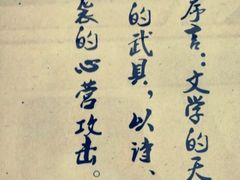 序言:文学的天
的武具,以诗、
裳的心营攻击。